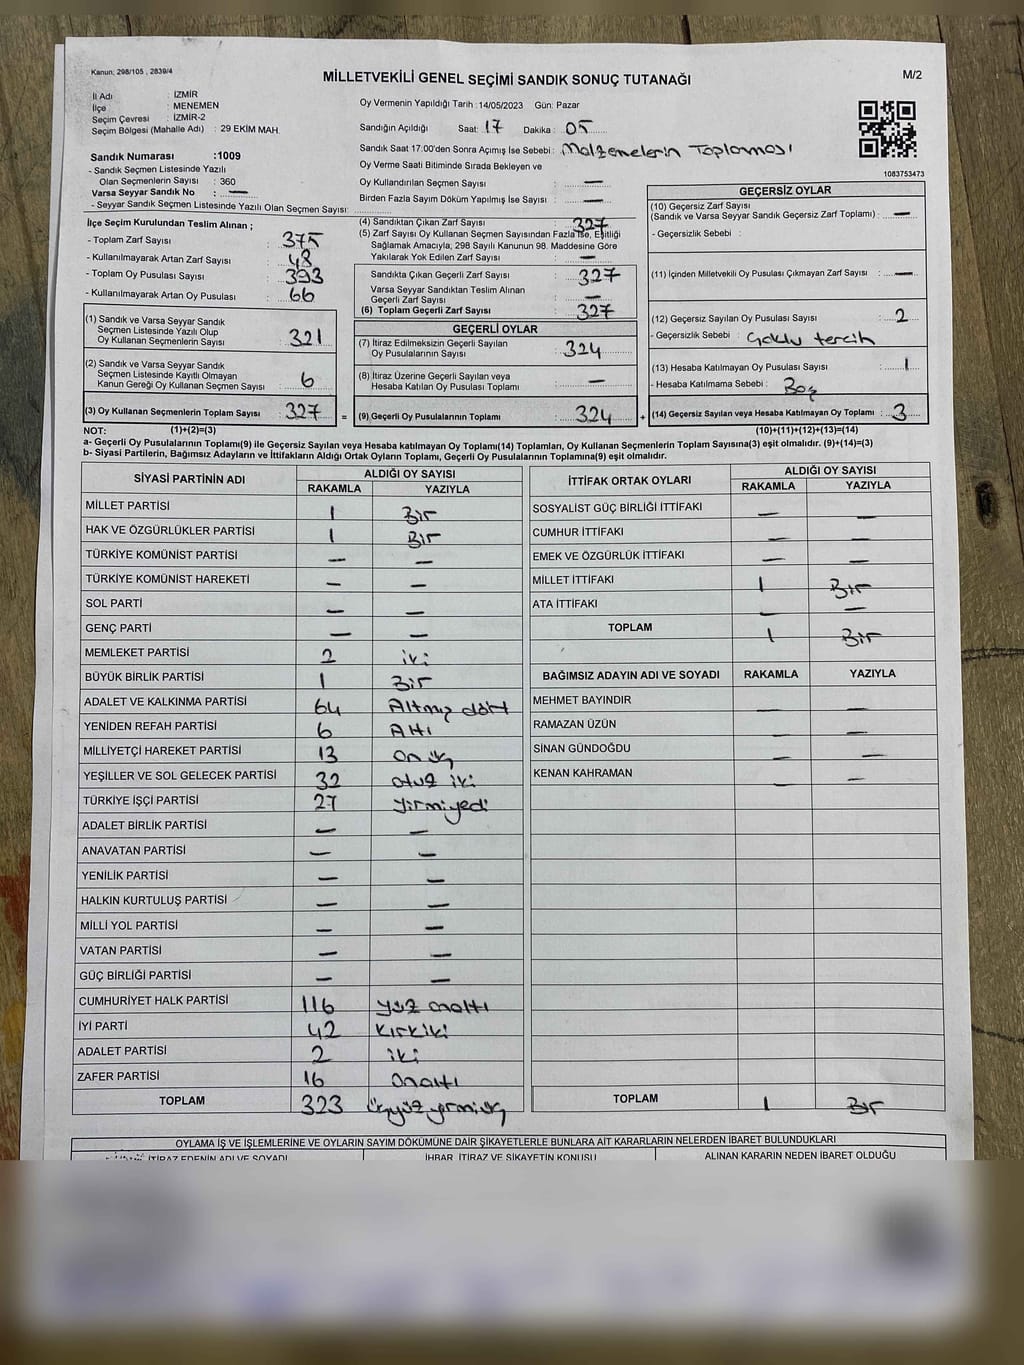 Kanun; 298/105 , 2839/4
MİLLETVEKİLİ GENEL SEÇİMİ SANDIK SONUÇ TUTANAĞI
M/2
İl Adı : İZMİR
İlçe : MENEMEN
Seçim Çevresi : İZMİR-2
Seçim Bölgesi (Mahalle Adı) : 29 EKİM MAH.
Sandık Numarası :1009
- Sandık Seçmen Listesinde Yazılı
Olan Seçmenlerin Sayısı : 360
Varsa Seyyar Sandık No : —
- Seyyar Sandık Seçmen Listesinde Yazılı Olan Seçmen Sayısı:
Oy Vermenin Yapıldığı Tarih :14/05/2023 Gün: Pazar
Sandığın Açıldığı Saat: 17 Dakika : 05
Sandık Saat 17.00'den Sonra Açımış İse Sebebi : Malzemelerin Toplanması
Oy Verme Saati Bitiminde Sırada Bekleyen ve
Oy Kullandırılan Seçmen Sayısı : —
Birden Fazla Sayım Döküm Yapılmış İse Sayısı : —
1083753473
İlçe Seçim Kurulundan Teslim Alınan ;
- Toplam Zarf Sayısı : 375
- Kullanılmayarak Artan Zarf Sayısı : 48
- Toplam Oy Pusulası Sayısı : 393
- Kullanılmayarak Artan Oy Pusulası : 66
(1) Sandık ve Varsa Seyyar Sandık
Seçmen Listesinde Yazılı Olup
Oy Kullanan Seçmenlerin Sayısı : 321
(2) Sandık ve Varsa Seyyar Sandık
Seçmen Listesinde Kayıtlı Olmayan
Kanun Gereği Oy Kullanan Seçmen Sayısı : 6
(3) Oy Kullanan Seçmenlerin Toplam Sayısı : 327 =
(4) Sandıktan Çıkan Zarf Sayısı : 327
(5) Zarf Sayısı Oy Kullanan Seçmen Sayısından Fazla İse, Eşitliği
Sağlamak Amacıyla; 298 Sayılı Kanunun 98. Maddesine Göre
Yakılarak Yok Edilen Zarf Sayısı : —
Sandıkta Çıkan Geçerli Zarf Sayısı : 327
Varsa Seyyar Sandıktan Teslim Alınan
Geçerli Zarf Sayısı : —
(6) Toplam Geçerli Zarf Sayısı : 327
GEÇERLİ OYLAR
(7) İtiraz Edilmeksizin Geçerli Sayılan
Oy Pusulalarının Sayısı : 324
(8) İtiraz Üzerine Geçerli Sayılan veya
Hesaba Katılan Oy Pusulası Toplamı : —
(9) Geçerli Oy Pusulalarının Toplamı : 324 +
GEÇERSİZ OYLAR
(10) Geçersiz Zarf Sayısı
(Sandık ve Varsa Seyyar Sandık Geçersiz Zarf Toplamı) : —
- Geçersizlik Sebebi :
(11) İçinden Milletvekili Oy Pusulası Çıkmayan Zarf Sayısı : —
(12) Geçersiz Sayılan Oy Pusulası Sayısı : 2
- Geçersizlik Sebebi : Çoklu tercih
(13) Hesaba Katılmayan Oy Pusulası Sayısı : 1
- Hesaba Katılmama Sebebi : Boş
(14) Geçersiz Sayılan veya Hesaba Katılmayan Oy Toplamı : 3
NOT: (1)+(2)=(3) (10)+(11)+(12)+(13)=(14)
a- Geçerli Oy Pusulalarının Toplamı(9) ile Geçersiz Sayılan veya Hesaba katılmayan Oy Toplamı(14) Toplamları, Oy Kullanan Seçmenlerin Toplam Sayısına(3) eşit olmalıdır. (9)+(14)=(3)
b- Siyasi Partilerin, Bağımsız Adayların ve İttifakların Aldığı Ortak Oyların Toplamı, Geçerli Oy Pusulalarının Toplamına(9) eşit olmalıdır.
SİYASİ PARTİNİN ADI ALDIĞI OY SAYISI
RAKAMLA YAZIYLA
MİLLET PARTİSİ 1 Bir
HAK VE ÖZGÜRLÜKLER PARTİSİ 1 Bir
TÜRKİYE KOMÜNİST PARTİSİ — —
TÜRKİYE KOMÜNİST HAREKETİ — —
SOL PARTİ — —
GENÇ PARTİ — —
MEMLEKET PARTİSİ 2 iki
BÜYÜK BİRLİK PARTİSİ 1 Bir
ADALET VE KALKINMA PARTİSİ 64 Altmış dört
YENİDEN REFAH PARTİSİ 6 Altı
MİLLİYETÇİ HAREKET PARTİSİ 13 on üç
YEŞİLLER VE SOL GELECEK PARTİSİ 32 otuz iki
TÜRKİYE İŞÇİ PARTİSİ 27 Yirmiyedi
ADALET BİRLİK PARTİSİ — —
ANAVATAN PARTİSİ — —
YENİLİK PARTİSİ — —
HALKIN KURTULUŞ PARTİSİ — —
MİLLİ YOL PARTİSİ — —
VATAN PARTİSİ — —
GÜÇ BİRLİĞİ PARTİSİ — —
CUMHURİYET HALK PARTİSİ 116 yüz onaltı
İYİ PARTİ 42 kırkiki
ADALET PARTİSİ 2 iki
ZAFER PARTİSİ 16 onaltı
TOPLAM 323 üçyüz yirmiüç
İTTİFAK ORTAK OYLARI ALDIĞI OY SAYISI
RAKAMLA YAZIYLA
SOSYALİST GÜÇ BİRLİĞİ İTTİFAKI — —
CUMHUR İTTİFAKI — —
EMEK VE ÖZGÜRLÜK İTTİFAKI — —
MİLLET İTTİFAKI 1 Bir
ATA İTTİFAKI — —
TOPLAM 1 Bir
BAĞIMSIZ ADAYIN ADI VE SOYADI RAKAMLA YAZIYLA
MEHMET BAYINDIR — —
RAMAZAN ÜZÜN — —
SİNAN GÜNDOĞDU — —
KENAN KAHRAMAN — —
TOPLAM 1 Bir
OYLAMA İŞ VE İŞLEMLERİNE VE OYLARIN SAYIM DÖKÜMÜNE DAİR ŞİKAYETLERLE BUNLARA AİT KARARLARIN NELERDEN İBARET BULUNDUKLARI
İTİRAZ EDENİN ADI VE SOYADI İHBAR, İTİRAZ VE ŞİKAYETİN KONUSU ALINAN KARARIN NEDEN İBARET OLDUĞU